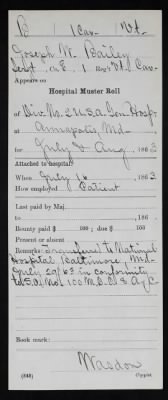 B 1 Cav. Vt.
Joseph W. Bailey
Sergt., Co. E, 1 Reg't Vt. Cav.
Appears on
Hospital Muster Roll
of Div. No. 2 U.S.A. Gen. Hosp.
at Annapolis, Md.
for July & Aug, 1863
Attached to hospital:
When July 16, 1863
How employed Patient
Last paid by Maj.
to , 186 .
Bounty paid $ 100; due $ 100
Present or absent
Remarks: Transferred to National
Hospital Baltimore, Md.
July 29/63 in conformity
to S.O. No. 100 M.D.
Book mark:
(848) Copyist.